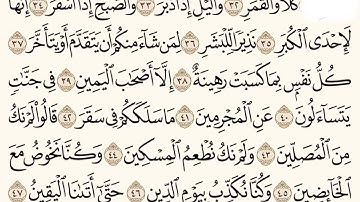 كَلَّا وَالْقَمَرِ ٣٢ وَاللَّيْلِ إِذْ أَدْبَرَ ٣٣ وَالصُّبْحِ إِذَا أَسْفَرَ ٣٤ إِنَّهَا
لَإِحْدَى الْكُبَرِ ٣٥ نَذِيرًا لِّلْبَشَرِ ٣٦ لِمَن شَاءَ مِنكُمْ أَن يَتَقَدَّمَ أَوْ يَتَأَخَّرَ ٣٧
كُلُّ نَفْسٍ بِمَا كَسَبَتْ رَهِينَةٌ ٣٨ إِلَّا أَصْحَابَ الْيَمِينِ ٣٩ فِي جَنَّاتٍ
يَتَسَاءَلُونَ ٤٠ عَنِ الْمُجْرِمِينَ ٤١ مَا سَلَكَكُمْ فِي سَقَرَ ٤٢ قَالُوا لَمْ نَكُ
مِنَ الْمُصَلِّينَ ٤٣ وَلَمْ نَكُ نُطْعِمُ الْمِسْكِينَ ٤٤ وَكُنَّا نَخُوضُ مَعَ
الْخَائِضِينَ ٤٥ وَكُنَّا نُكَذِّبُ بِيَوْمِ الدِّينِ ٤٦ حَتَّىٰ أَتَانَا الْيَقِينُ ٤٧